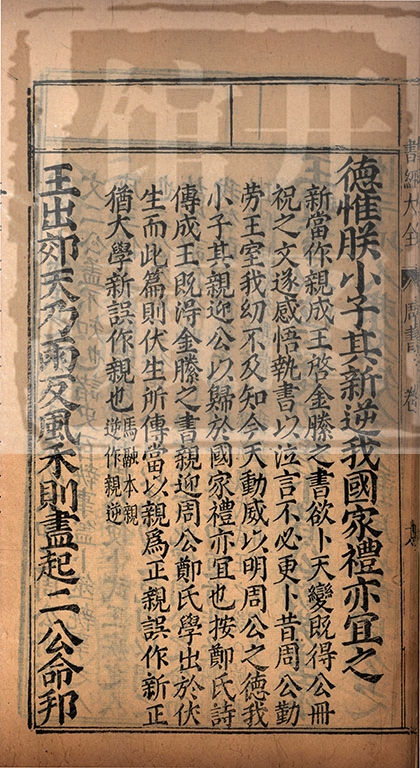 德惟朕小子其新逆我國家禮亦宜之
新當作親成王啓金縢之書欲卜天變旣得公冊
祝之文遂感悟執書以泣言不必更卜昔周公勤
勞王室我幼不及知今天動威以明周公之德我
小子其親迎公以歸於國家禮亦宜也按鄭氏詩
傳成王旣得金縢之書親迎周公鄭氏學出於伏
生而此篇則伏生所傳當以親爲正親誤作新正
猶大學新誤作親也
馬融本親
逆作親逆
王出郊天乃雨反風禾則盡起二公命邦
書經大全